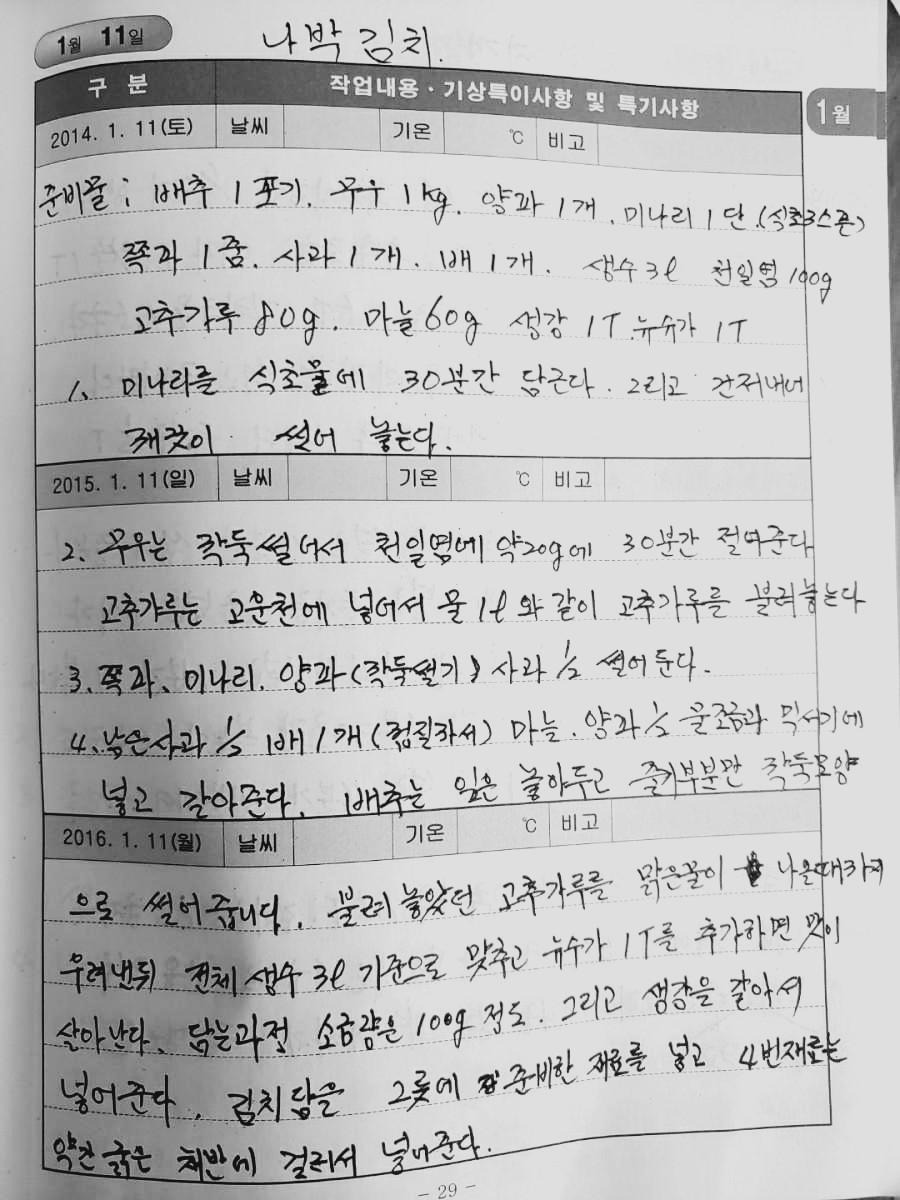 1월 11일
나박김치.
구 분 작업내용·기상특이사항 및 특기사항
1월
2014. 1. 11(토) 날씨 기온 ℃ 비고
준비물 : 배추 1포기. 무우 1kg. 양파 1개. 미나리 1단.(식초3스픈)
쪽파 1줌. 사과 1개. 배 1개. 생수 3ℓ 천일염 100g
고추가루 80g. 마늘 60g 생강 1T. 뉴슈가 1T
1. 미나리를 식초물에 30분간 담근다. 그리고 건져내어
깨끗이 썰어 놓는다.
2015. 1. 11(일) 날씨 기온 ℃ 비고
2. 무우는 깍둑썰어서 천일염에 약20g에 30분간 절여준다
고추가루는 고운천에 넣어서 물 1ℓ와 같이 고추가루를 불려놓는다
3. 쪽파, 미나리. 양파(깍둑썰기) 사과 ½ 썰어둔다.
4. 남은사과 ½ 배 1개(껍질까서) 마늘. 양파 ½ 물조금과 믹서기에
넣고 갈아준다. 배추는 잎은 놓아두고 줄기부분만 깍둑모양
2016. 1. 11(월) 날씨 기온 ℃ 비고
으로 썰어줍니다. 불려놓았던 고추가루를 맑은물이 나올때까지
우려낸뒤 전체 생수 3ℓ 기준으로 맞추고 뉴수가 1T를 추가하면 맛이
살아난다. 담는과정 소금량은 100g 정도. 그리고 생강을 갈아서
넣어준다. 김치담을 그릇에 준비한 재료를 넣고 4번재료는
약간 굵은 채반에 걸러서 넣어준다.
- 29 -